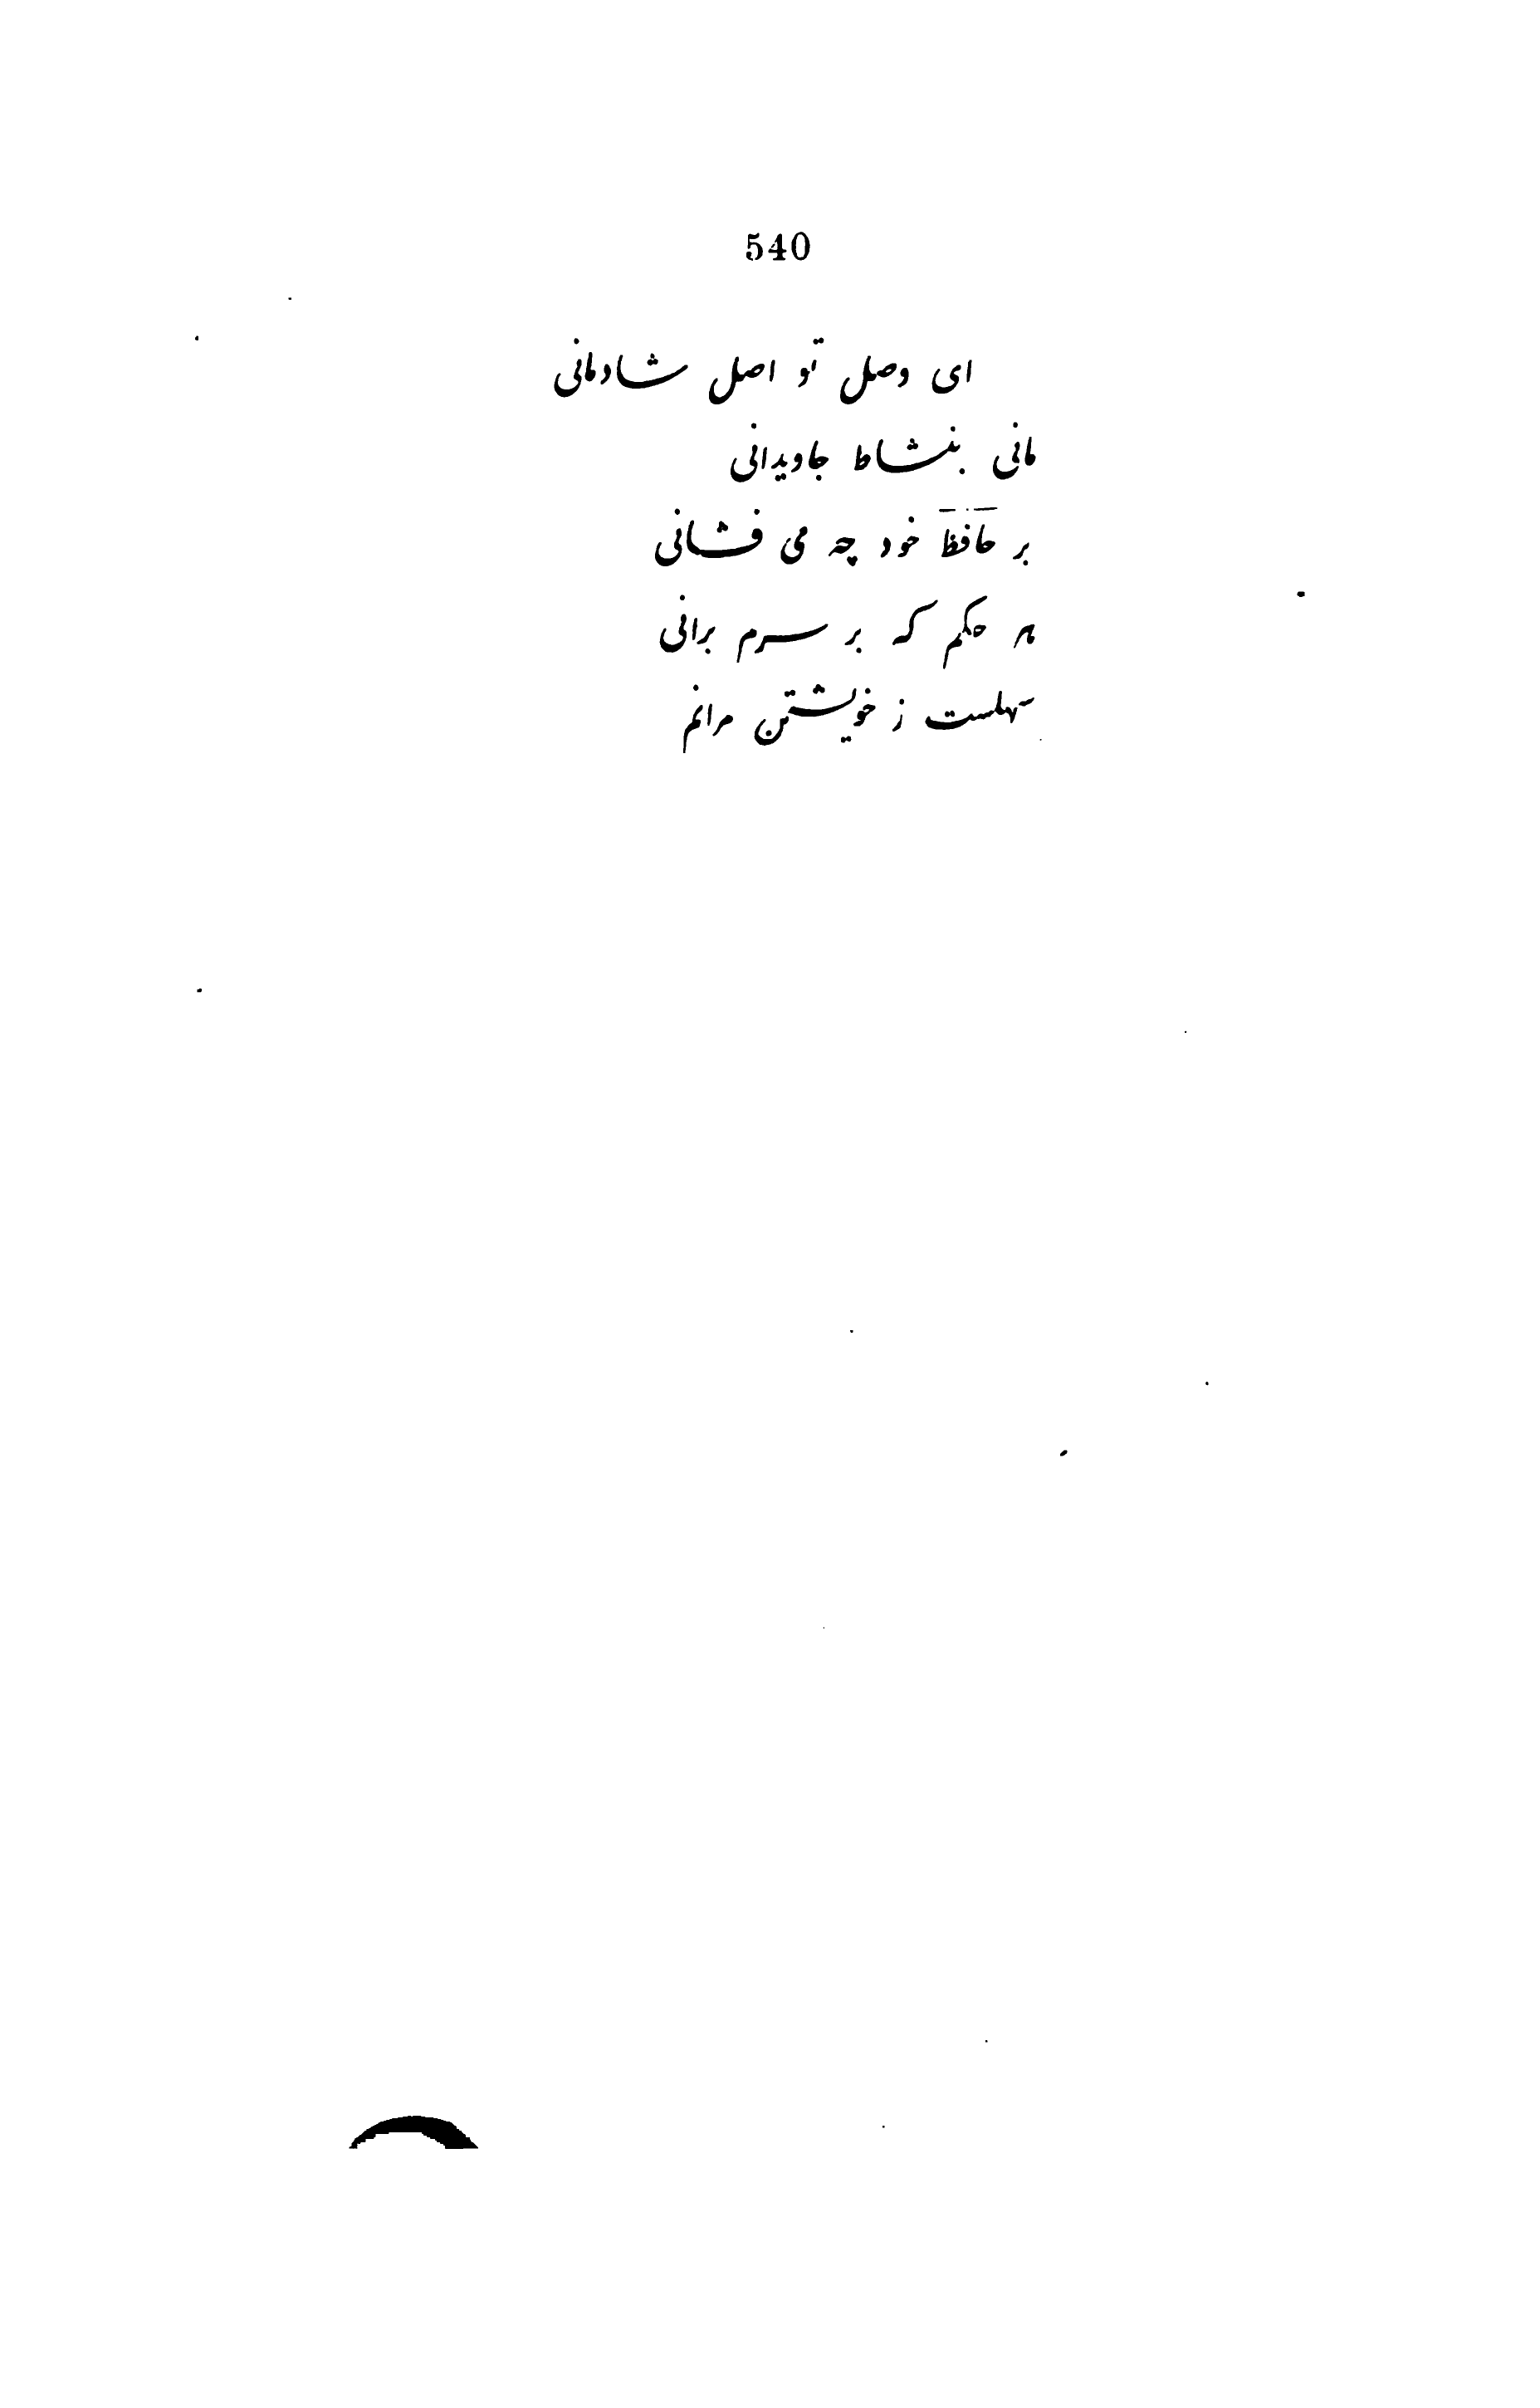 540
ای وصل تو اصل شادمانی
مانی بنشاط جاویدانی
بر حافظ خود چه می فشانی
هر حکم که بر سرم برانی
سهلست ز خویشتن مرانم